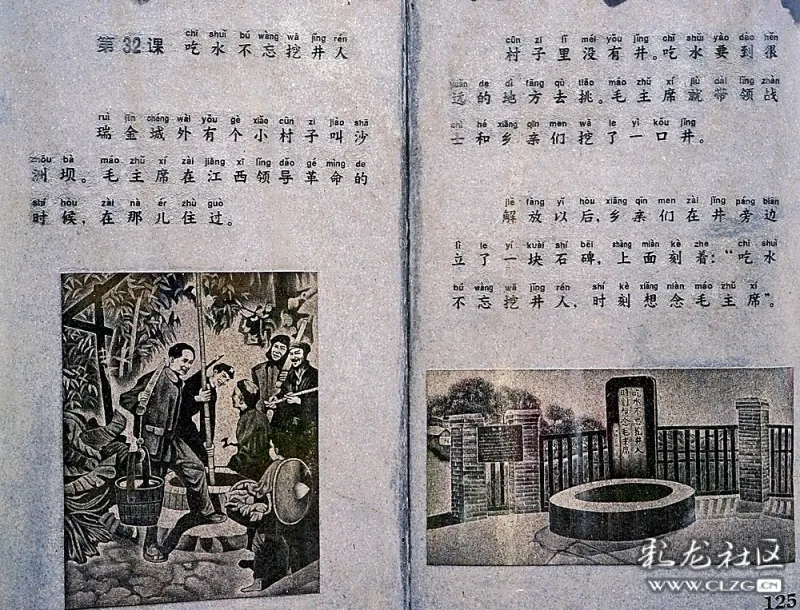 第32课
chī shuǐ bú wàng wā jǐng rén
吃水不忘挖井人
ruì jīn chéng wài yǒu gè xiǎo cūn zi jiào shā
瑞金城外有个小村子叫沙
zhōu bà máo zhǔ xí zài jiāng xī lǐng dǎo gé mìng de
洲坝。毛主席在江西领导革命的
shí hòu zài nà ér zhù guò
时候，在那儿住过。
cūn zi lǐ méi yǒu jǐng chī shuǐ yào dào hěn
村子里没有井。吃水要到很
yuǎn de dì fāng qù tiāo máo zhǔ xí jiù dài lǐng zhàn
远的地方去挑。毛主席就带领战
shì hé xiāng qīn men wā le yì kǒu jǐng
士和乡亲们挖了一口井。
jiě fàng yǐ hòu xiāng qīn men zài jǐng páng biān
解放以后，乡亲们在井旁边
lì le yí kuài shí bēi shàng miàn kè zhe chī shuǐ
立了一块石碑，上面刻着：“吃水
bú wàng wā jǐng rén shí kè xiǎng niàn máo zhǔ xí
不忘挖井人，时刻想念毛主席”。
吃水不忘挖井人
时刻想念毛主席
125
彩龙社区
WWW.CLZG.CN